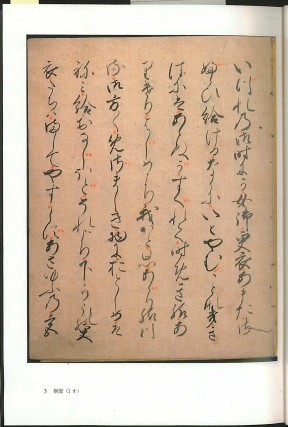 いつれの御時にか女御更衣あまたさ
ふらひ給けるなかにいとやむことなきき
はにはあらぬかすくれて時めき給あ
りけりはしめより我はと思あかり給へ
る御方〱めさましき物におとしめそ
ねみ給おなしほとそれより下らうの更
衣たちはましてやすからすあさゆふの宮
3 桐壺（1オ）